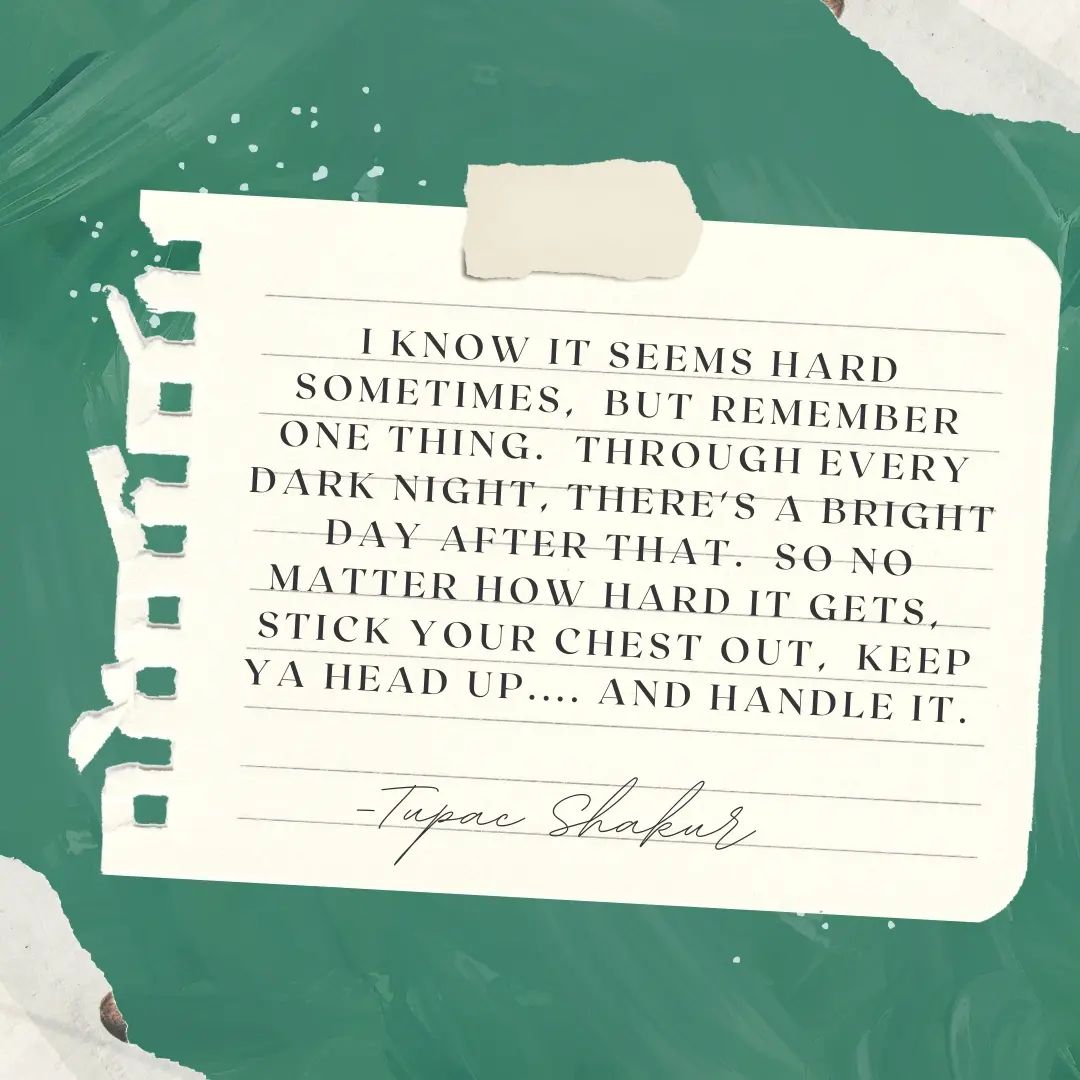 I KNOW IT SEEMS HARD
SOMETIMES, BUT REMEMBER
ONE THING. THROUGH EVERY
DARK NIGHT, THERE'S A BRIGHT
DAY AFTER THAT. SO NO
MATTER HOW HARD IT GETS,
STICK YOUR CHEST OUT, KEEP
YA HEAD UP.... AND HANDLE IT.
-Tupac Shakur